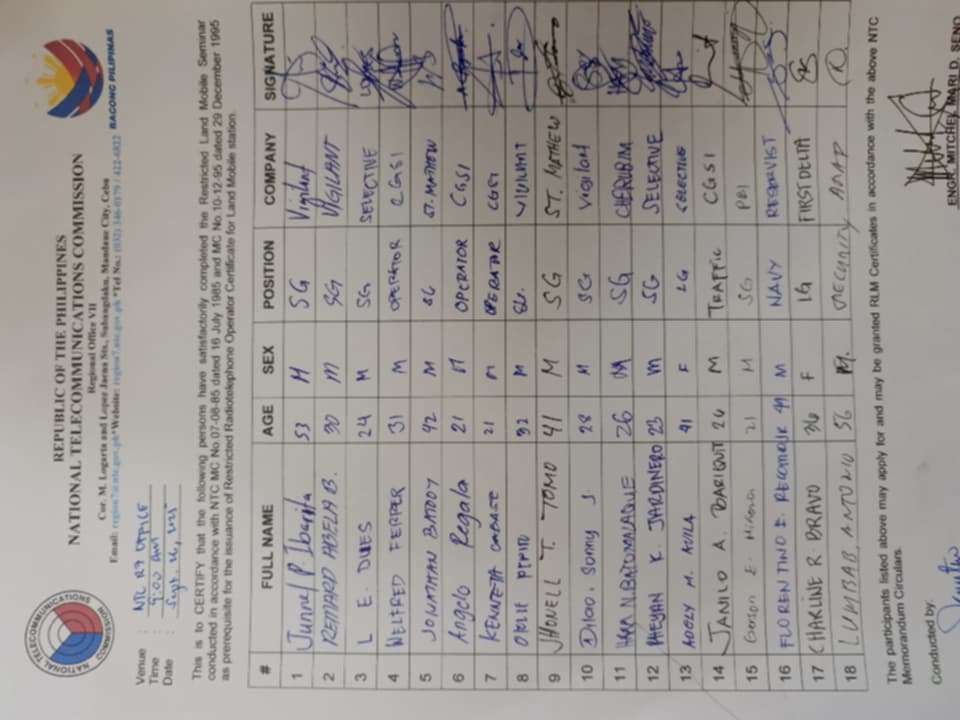 REPUBLIC OF THE PHILIPPINES
NATIONAL TELECOMMUNICATIONS COMMISSION
Regional Office VII
Cor. M. Logarta and Lopez Jaena Sts., Subangdaku, Mandaue City, Cebu
Email: region7@ntc.gov.ph*Website: region7.ntc.gov.ph *Tel No.: (032) 346-0179 / 422-4822
BAGONG PILIPINAS
NATIONAL TELECOMMUNICATIONS COMMISSION
Venue : NTC R7 OFFICE
Time : 9:00 am
Date : Sept. 16,
This is to CERTIFY that the following persons have satisfactorily completed the Restricted Land Mobile Seminar
conducted in accordance with NTC MC No.07-08-85 dated 16 July 1985 and MC No.10-12-95 dated 29 December 1995
as prerequisite for the issuance of Restricted Radiotelephone Operator Certificate for Land Mobile station.
# FULL NAME AGE SEX POSITION COMPANY SIGNATURE
1 Junnel P. 53 M SG Vigilant
2 B. 30 M SG VIGILANT
3 L. E. 24 M SG SELECTIVE
4 WELFRED FERRER 31 M OPERATOR CGSI
5 JONATHAN 42 M SG ST. MATHEW
6 Angelo Regala 21 M OPERATOR CGSI
7 21 M OPERATOR CGSI
8 32 M SG. VIGILANT
9 JHONELL T. TOMO 41 M SG ST. MATHEW
10 Sonny J. 28 M SG Vigilant
11 26 M SG CHERUBIM
12 K. JARDINERO 23 M SG SELECTIVE
13 ADELY M. AVILA 41 F LG SELECTIVE
14 JANILO A. BARIQUIT 26 M TRAFFIC CGSI
15 E. 21 M SG
16 FLORENTINO E. 49 M NAVY RESERVIST
17 CHARLINE R. BRAVO 36 F LG FIRST DELTA
18 ANTONIO 56 M. SECURITY
The participants listed above may apply for and may be granted RLM Certificates in accordance with the above NTC
Memorandum Circulars.
Conducted by:
ENGR. MITCHEL MARI D. SENO